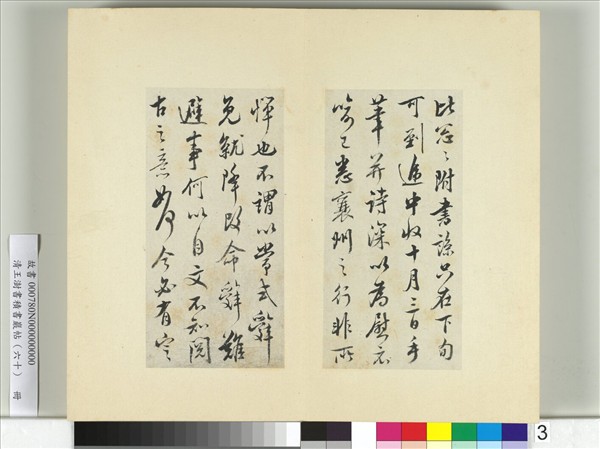 比忩〻附書諒只在下旬
可到遞中收十月三日手
筆并詩深以為慰示
喻已悉襄州之行非所
憚也不謂以常式辭
免就降改命辭難
避事何以自文不知閱
古之意如何今必有定
故書 000780N000000000
清王澍書積書巖帖（六十） 冊
3